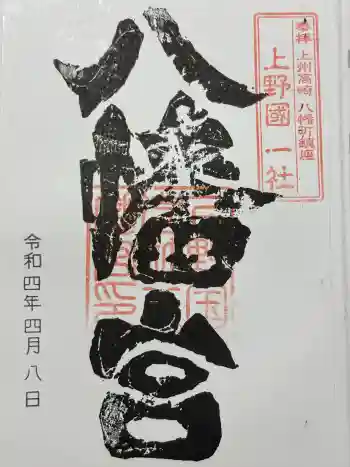 奉拝 上州高崎 八幡町鎮座
上野國一社
八幡宮
令和四年四月八日